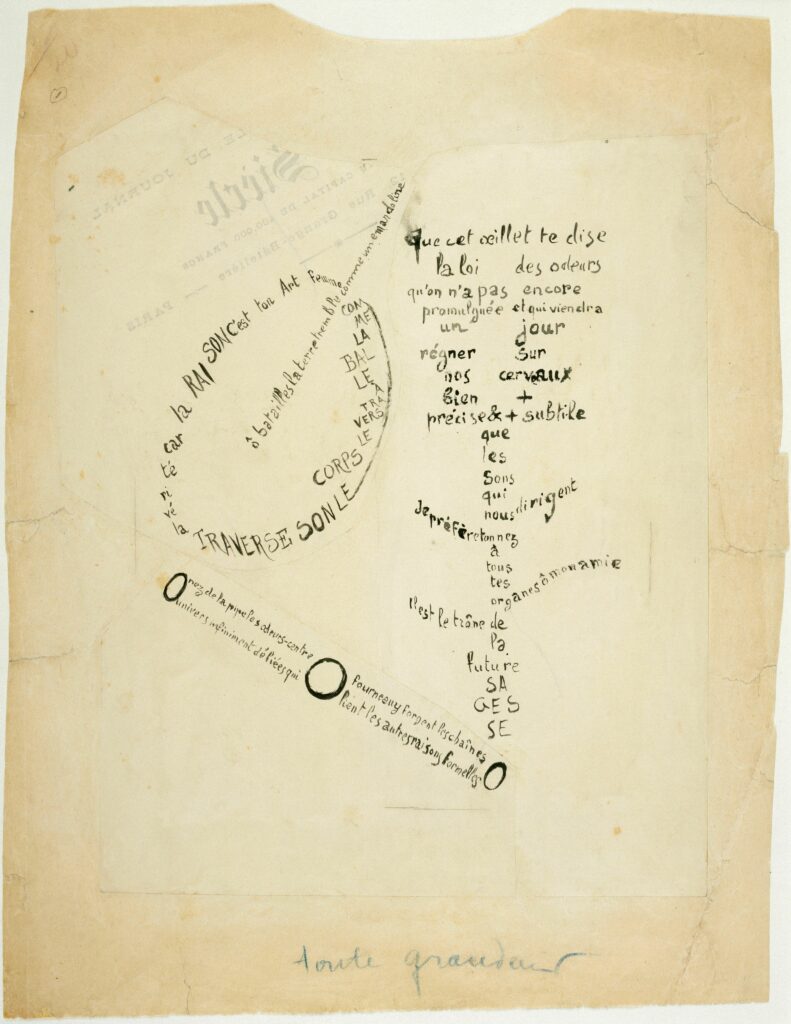 DU JOURNAL
Siècle
CAPITAL DE
FRANCS
Rue Grange-Batelière
PARIS
ô batailles la terre tremble comme une mandoline
COM
ME
LA
BAL
LE
A
TRA
VERS
LE
CORPS
LE SON TRAVERSE
la vé ri té car la RAISON c'est ton Art Femme
que cet œillet te dise
la loi des odeurs
qu'on n'a pas encore
promulguée et qui viendra
un jour
régner sur
nos cerveaux
bien +
précise & + subtile
que
les
sons
qui
nous dirigent
Je préfère ton nez
à
tous
tes
organes ô mon amie
Il est le trône de
la
future
SA
GES
SE
O nez de la pipe les odeurs-centre
O fourneau y forgent les chaînes
univers infiniment déliées qui
lient les autres raisons formelles
O
toute grandeur